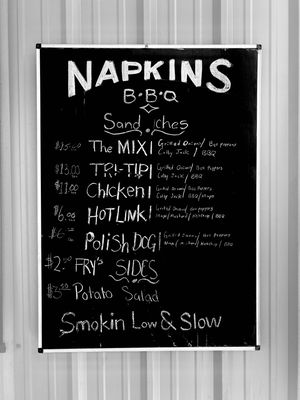 NAPKINS
B•B•Q
Sand iches
The MIX | Grilled Onion/ Bell Peppers
Colby Jack/ BBQ
$13.00 TRI-TIP | Grilled Onion/ Bell Peppers
Colby Jack/ BBQ
$11.00 Chicken | Grilled Onion/ Bell Peppers
Colby Jack/ BBQ/Mayo
$6.00 HOT LINK | Grilled Onion/ Bell Peppers
Mayo/Mustard/Ketchup/BBQ
Polish DOG | Grilled Onion/ Bell Peppers
Mayo/Mustard/Ketchup/BBQ
FRY's SIDES
Potato Salad
Smokin Low & Slow